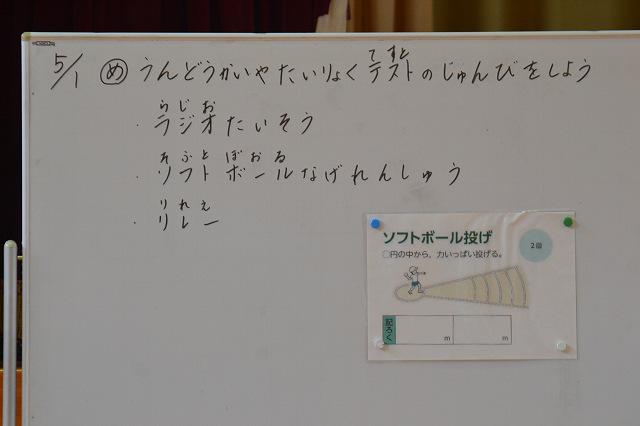 5/1 め うんどうかいやたいりょくテストのじゅんびをしよう
てすと
らじお
・ラジオたいそう
そふとぼおる
・ソフトボールなげれんしゅう
りれえ
・リレー
ソフトボール投げ
2回
○円の中から、力いっぱい投げる。
記ろく
m
m